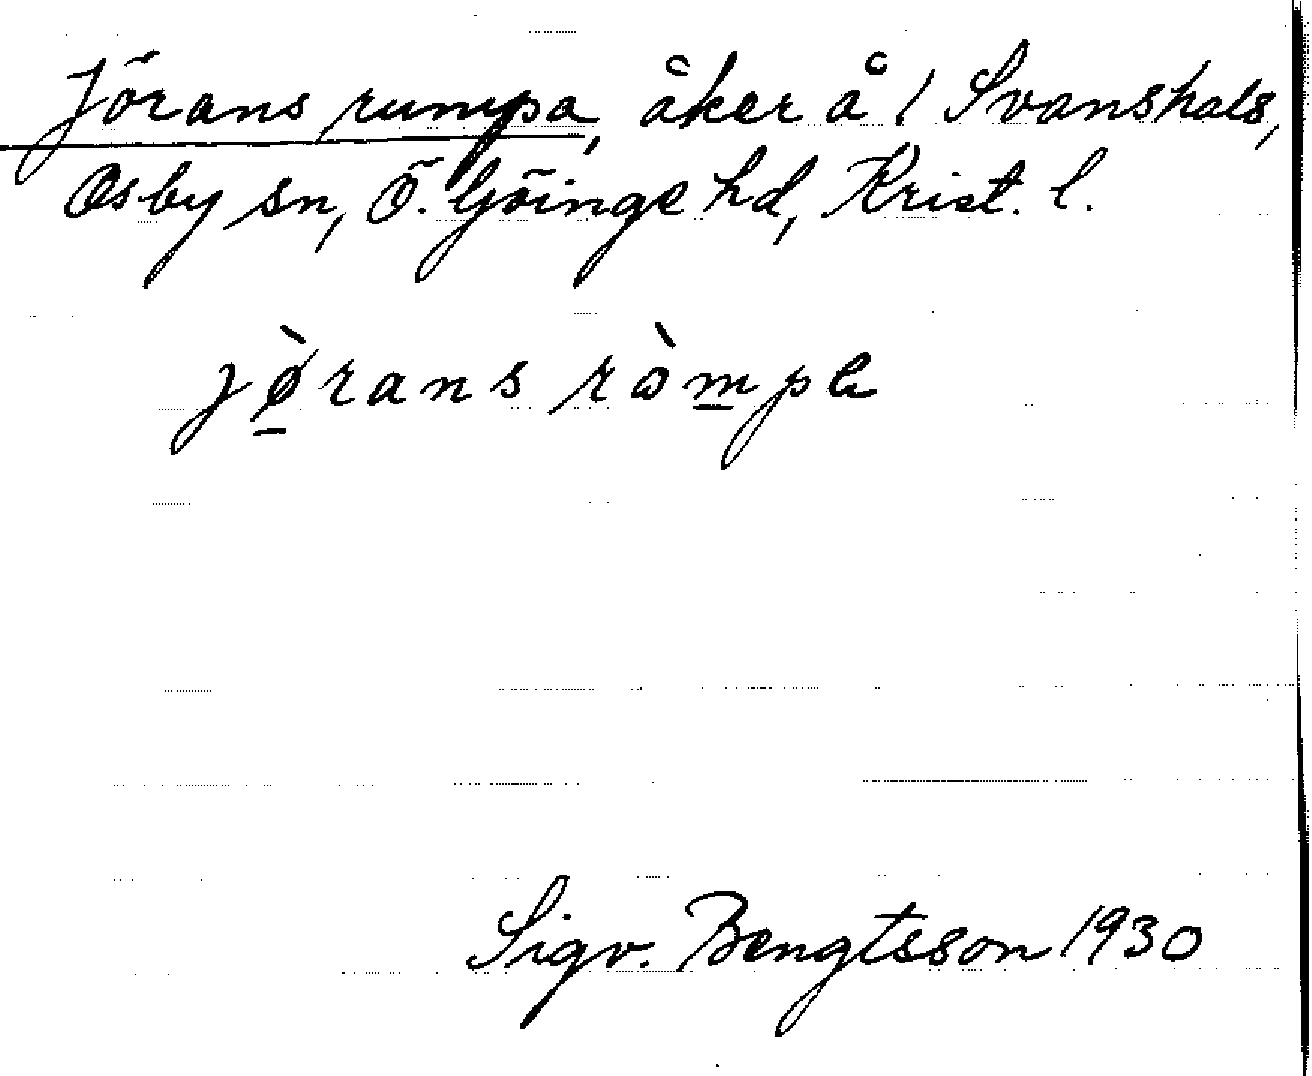 Jörans rumpa, åker å 1 Svanshals,
Osby sn, Ö. Göinge hd, Krist. l.
jø̠̀rans ròm̠pa
Sigv. Bengtsson 1930